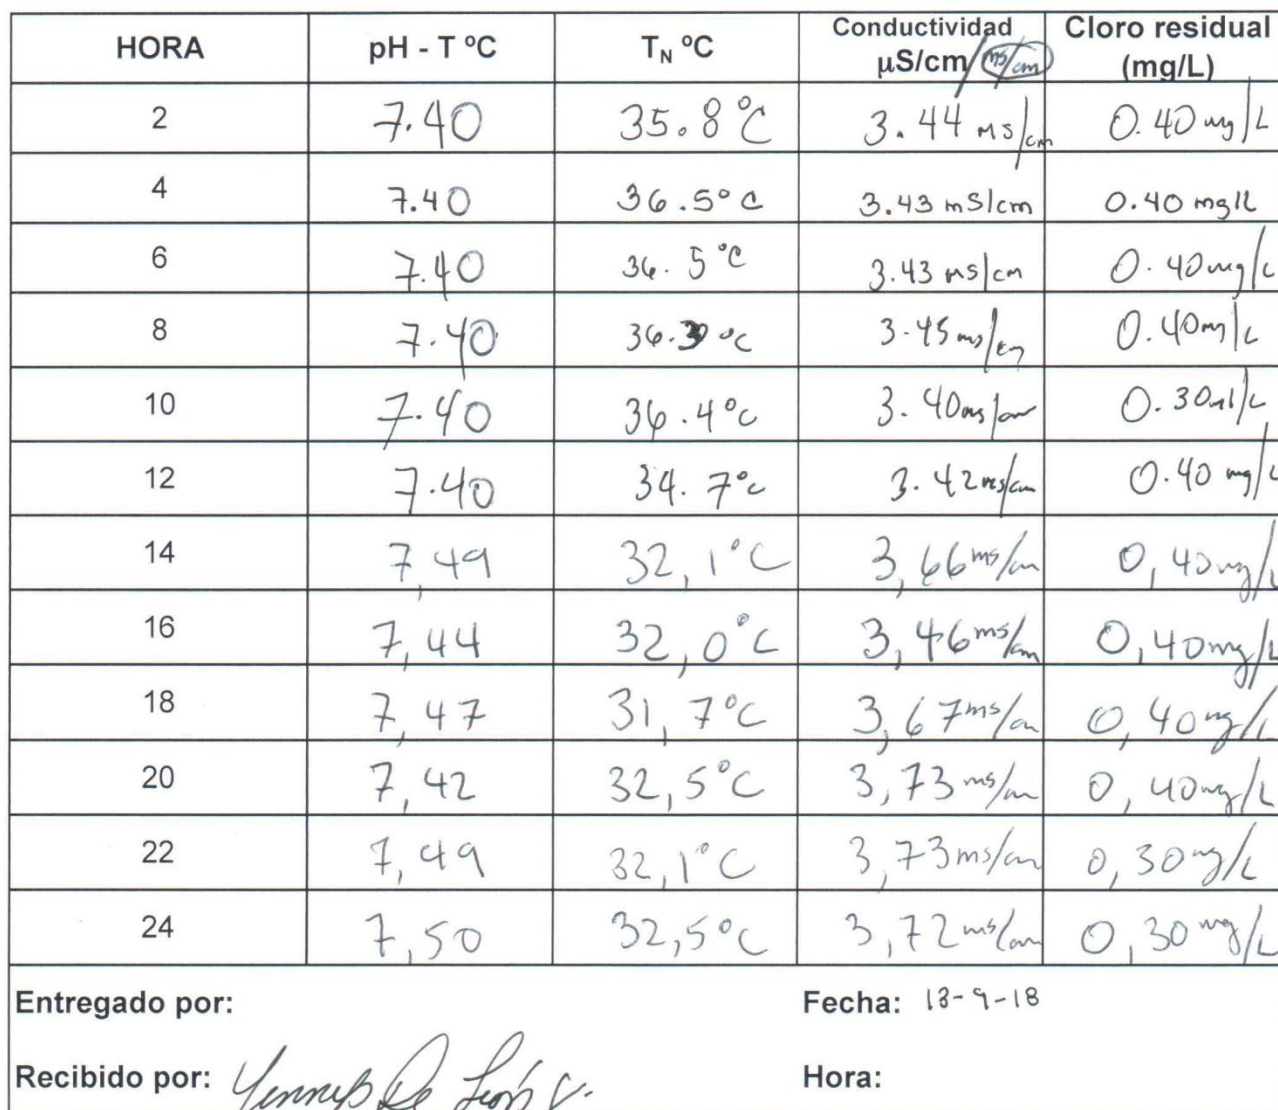 HORA pH - T ºC T_N ºC Conductividad µS/cm/ms/cm Cloro residual (mg/L)
2 7.40 35.8°C 3.44 ms/cm 0.40 mg/L
4 7.40 36.5°C 3.43 mS/cm 0.40 mg/L
6 7.40 36.5°C 3.43 ms/cm 0.40 mg/L
8 7.40 36.3°C 3.45 ms/cm 0.40 mg/L
10 7.40 36.4°C 3.40 ms/cm 0.30
12 7.40 34.7°C 3.42 ms/cm 0.40 mg/L
14 7,49 32,1°C 3,66 ms/cm 0,40 mg/L
16 7,44 32,0°C 3,46 ms/cm 0,40 mg/L
18 7,47 31,7°C 3,67 ms/cm 0,40 mg/L
20 7,42 32,5°C 3,73 ms/cm 0,40 mg/L
22 7,49 32,1°C 3,73 ms/cm 0,30 mg/L
24 7,50 32,5°C 3,72 ms/cm 0,30 mg/L
Entregado por: Fecha: 13-9-18
Recibido por: De León V. Hora: